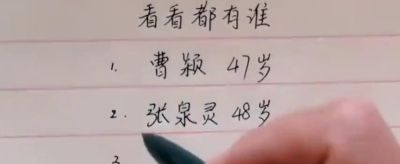 看看都有谁
1. 曹颖 47岁
2. 张泉灵 48岁
3